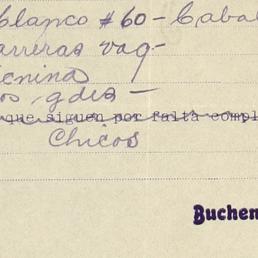 blanco #60 - Cabal
arreras vag-
enina
os, gdes -
que siguen por falta compl
Chicos
Buchen